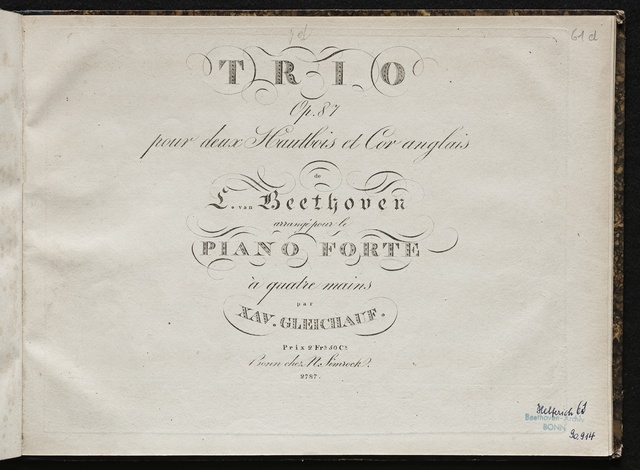 61 d
TRIO
Op. 87
pour deux Hautbois et Cor anglais
de
L. van Beethoven
arrangé pour le
PIANO FORTE
à quatre mains
par
XAV. GLEICHAUF.
Prix 2 Frs 50 Cs
Bonn chez N. Simrock.
2787.
Helferich 61
Beethoven-Archiv
BONN